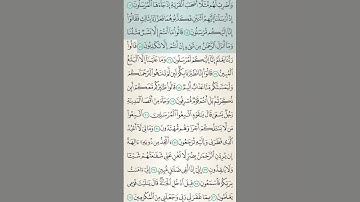 وَاضْرِبْ لَهُم مَّثَلًا أَصْحَابَ الْقَرْيَةِ إِذْ جَاءَهَا الْمُرْسَلُونَ ۝١٣
إِذْ أَرْسَلْنَا إِلَيْهِمُ اثْنَيْنِ فَكَذَّبُوهُمَا فَعَزَّزْنَا بِثَالِثٍ فَقَالُوا
إِنَّا إِلَيْكُم مُّرْسَلُونَ ۝١٤ قَالُوا مَا أَنتُمْ إِلَّا بَشَرٌ مِّثْلُنَا
وَمَا أَنزَلَ الرَّحْمَٰنُ مِن شَيْءٍ إِنْ أَنتُمْ إِلَّا تَكْذِبُونَ ۝١٥ قَالُوا
رَبُّنَا يَعْلَمُ إِنَّا إِلَيْكُمْ لَمُرْسَلُونَ ۝١٦ وَمَا عَلَيْنَا إِلَّا الْبَلَاغُ
الْمُبِينُ ۝١٧ قَالُوا إِنَّا تَطَيَّرْنَا بِكُمْ لَئِن لَّمْ تَنتَهُوا لَنَرْجُمَنَّكُمْ
وَلَيَمَسَّنَّكُم مِّنَّا عَذَابٌ أَلِيمٌ ۝١٨ قَالُوا طَائِرُكُم مَّعَكُمْ أَئِن
ذُكِّرْتُم بَلْ أَنتُمْ قَوْمٌ مُّسْرِفُونَ ۝١٩ وَجَاءَ مِنْ أَقْصَا الْمَدِينَةِ
رَجُلٌ يَسْعَىٰ قَالَ يَا قَوْمِ اتَّبِعُوا الْمُرْسَلِينَ ۝٢٠ اتَّبِعُوا
مَن لَّا يَسْأَلُكُمْ أَجْرًا وَهُم مُّهْتَدُونَ ۝٢١ وَمَا لِيَ لَا أَعْبُدُ
الَّذِي فَطَرَنِي وَإِلَيْهِ تُرْجَعُونَ ۝٢٢ أَأَتَّخِذُ مِن دُونِهِ آلِهَةً
إِن يُرِدْنِ الرَّحْمَٰنُ بِضُرٍّ لَّا تُغْنِ عَنِّي شَفَاعَتُهُمْ شَيْئًا
وَلَا يُنقِذُونِ ۝٢٣ إِنِّي إِذًا لَّفِي ضَلَالٍ مُّبِينٍ ۝٢٤ إِنِّي آمَنتُ
بِرَبِّكُمْ فَاسْمَعُونِ ۝٢٥ قِيلَ ادْخُلِ الْجَنَّةَ قَالَ يَا لَيْتَ قَوْمِي
يَعْلَمُونَ ۝٢٦ بِمَا غَفَرَ لِي رَبِّي وَجَعَلَنِي مِنَ الْمُكْرَمِينَ ۝٢٧